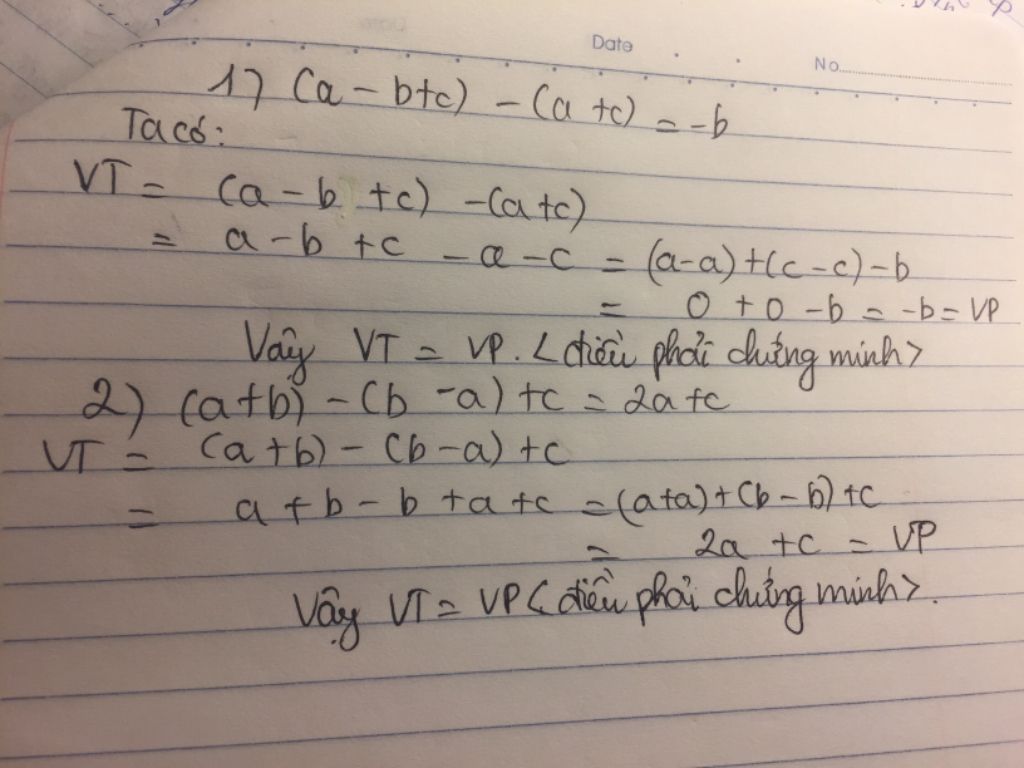 Date
No
1) (a - b+c) - (a +c) = -b
Ta có:
VT = (a - b +c) -(a+c)
= a - b + c - a - c = (a-a)+(c-c)-b
= 0 + 0 - b = -b = VP
Vây VT = VP. <điều phải chứng minh>
2) (a+b) - (b -a)+c = 2a+c
VT = (a+b) - (b-a)+c
= a + b - b + a + c = (a+a)+(b-b)+c
= 2a +c = VP
Vậy VT = VP <điều phải chứng minh>.